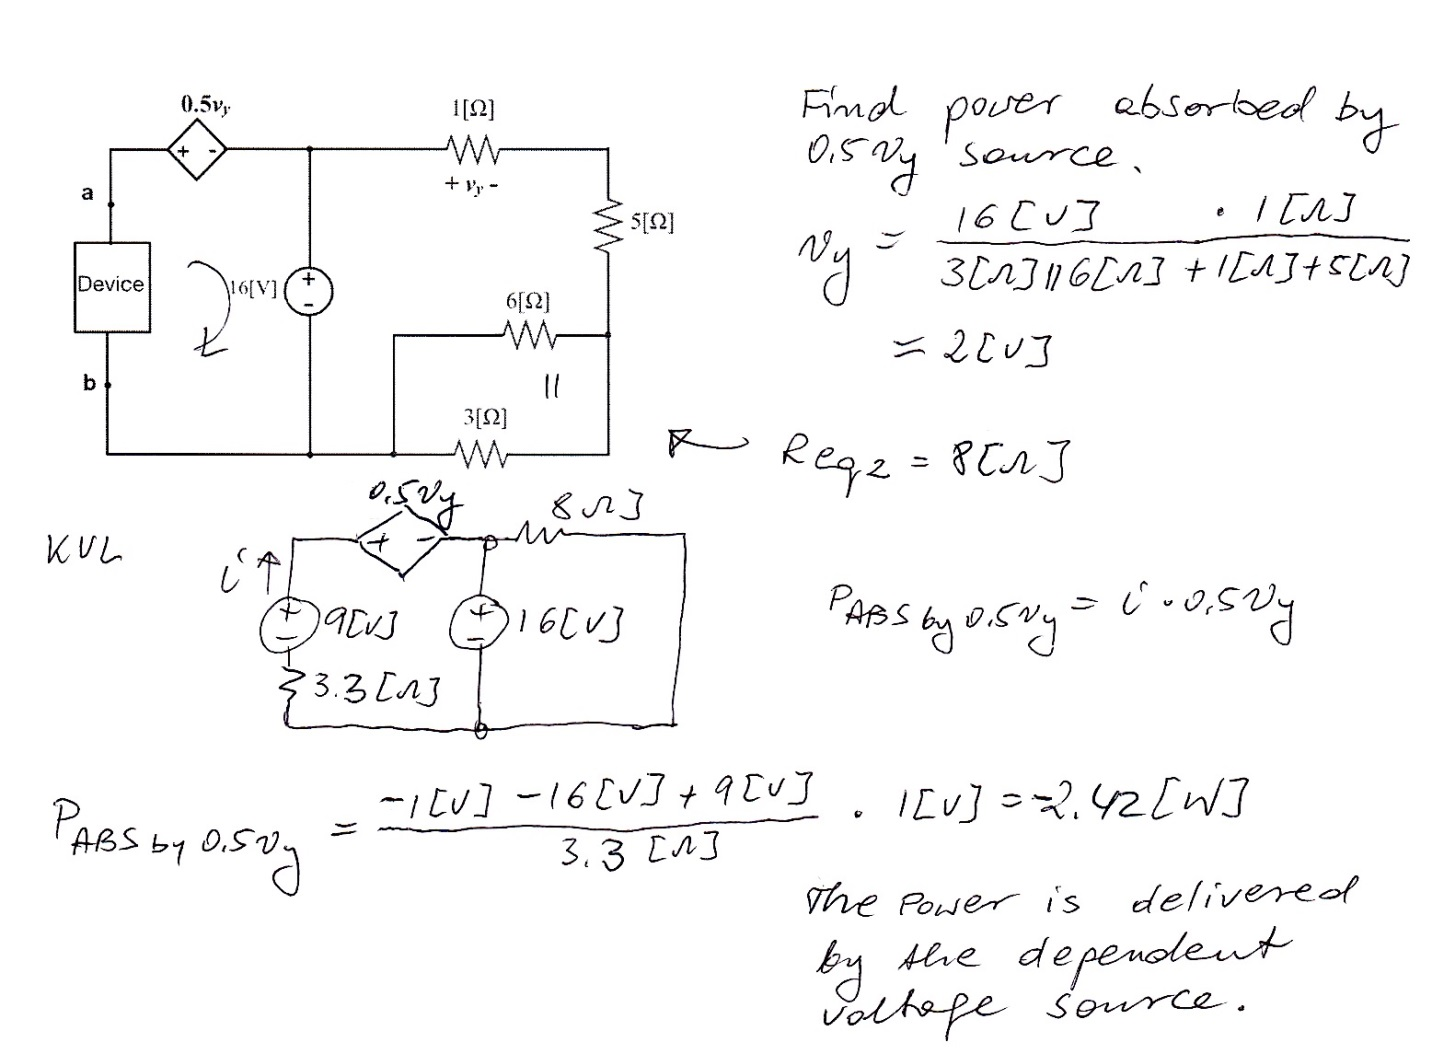 0.5vy
+ -
1[Ω]
+ vy -
5[Ω]
a
Device
16[V]
+
-
6[Ω]
b
||
3[Ω]
Find power absorbed by
0.5 vy source.
vy = 16[V] · 1[Ω]
3[Ω]||6[Ω] + 1[Ω]+5[Ω]
= 2[V]
Req2 = 8[Ω]
KVL
0.5vy
8Ω]
i
+ -
+
-
9[V]
+
-
16[V]
3.3[Ω]
PABS by 0.5vy = i · 0.5vy
PABS by 0.5vy = -1[V] -16[V] + 9[V] · 1[V] = -2.42[W]
3.3 [Ω]
The Power is delivered
by the dependent
voltage source.